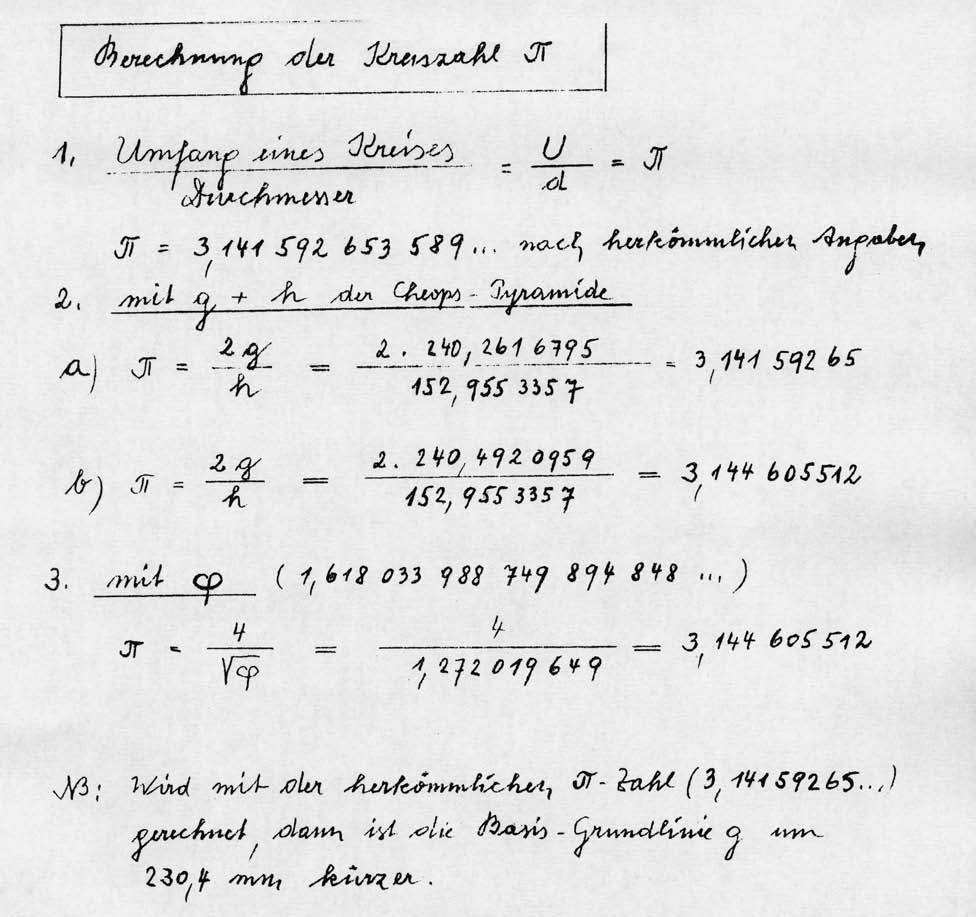 Berechnung der Kreiszahl π
1. Umfang eines Kreises / Durchmesser = U / d = π
π = 3,141 592 653 589... nach herkömmlichen Angaben
2. mit g + h der Cheops-Pyramide
a) π = 2g / h = 2 . 240,261 6795 / 152,955 3357 = 3,141 592 65
b) π = 2g / h = 2. 240,492 0959 / 152,955 3357 = 3,144 605512
3. mit φ (1,618 033 988 749 894 848 ...)
π = 4 / √φ = 4 / 1,272 019 649 = 3,144 605 512
NB: Wird mit der herkömmlichen π-Zahl (3,14159265...)
gerechnet, dann ist die Basis-Grundlinie g um
230,4 mm kürzer.